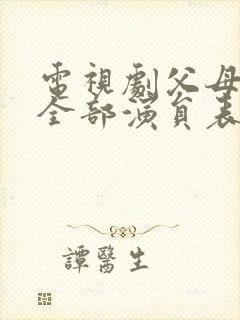 電視劇父母
全部演員表
譚醫生